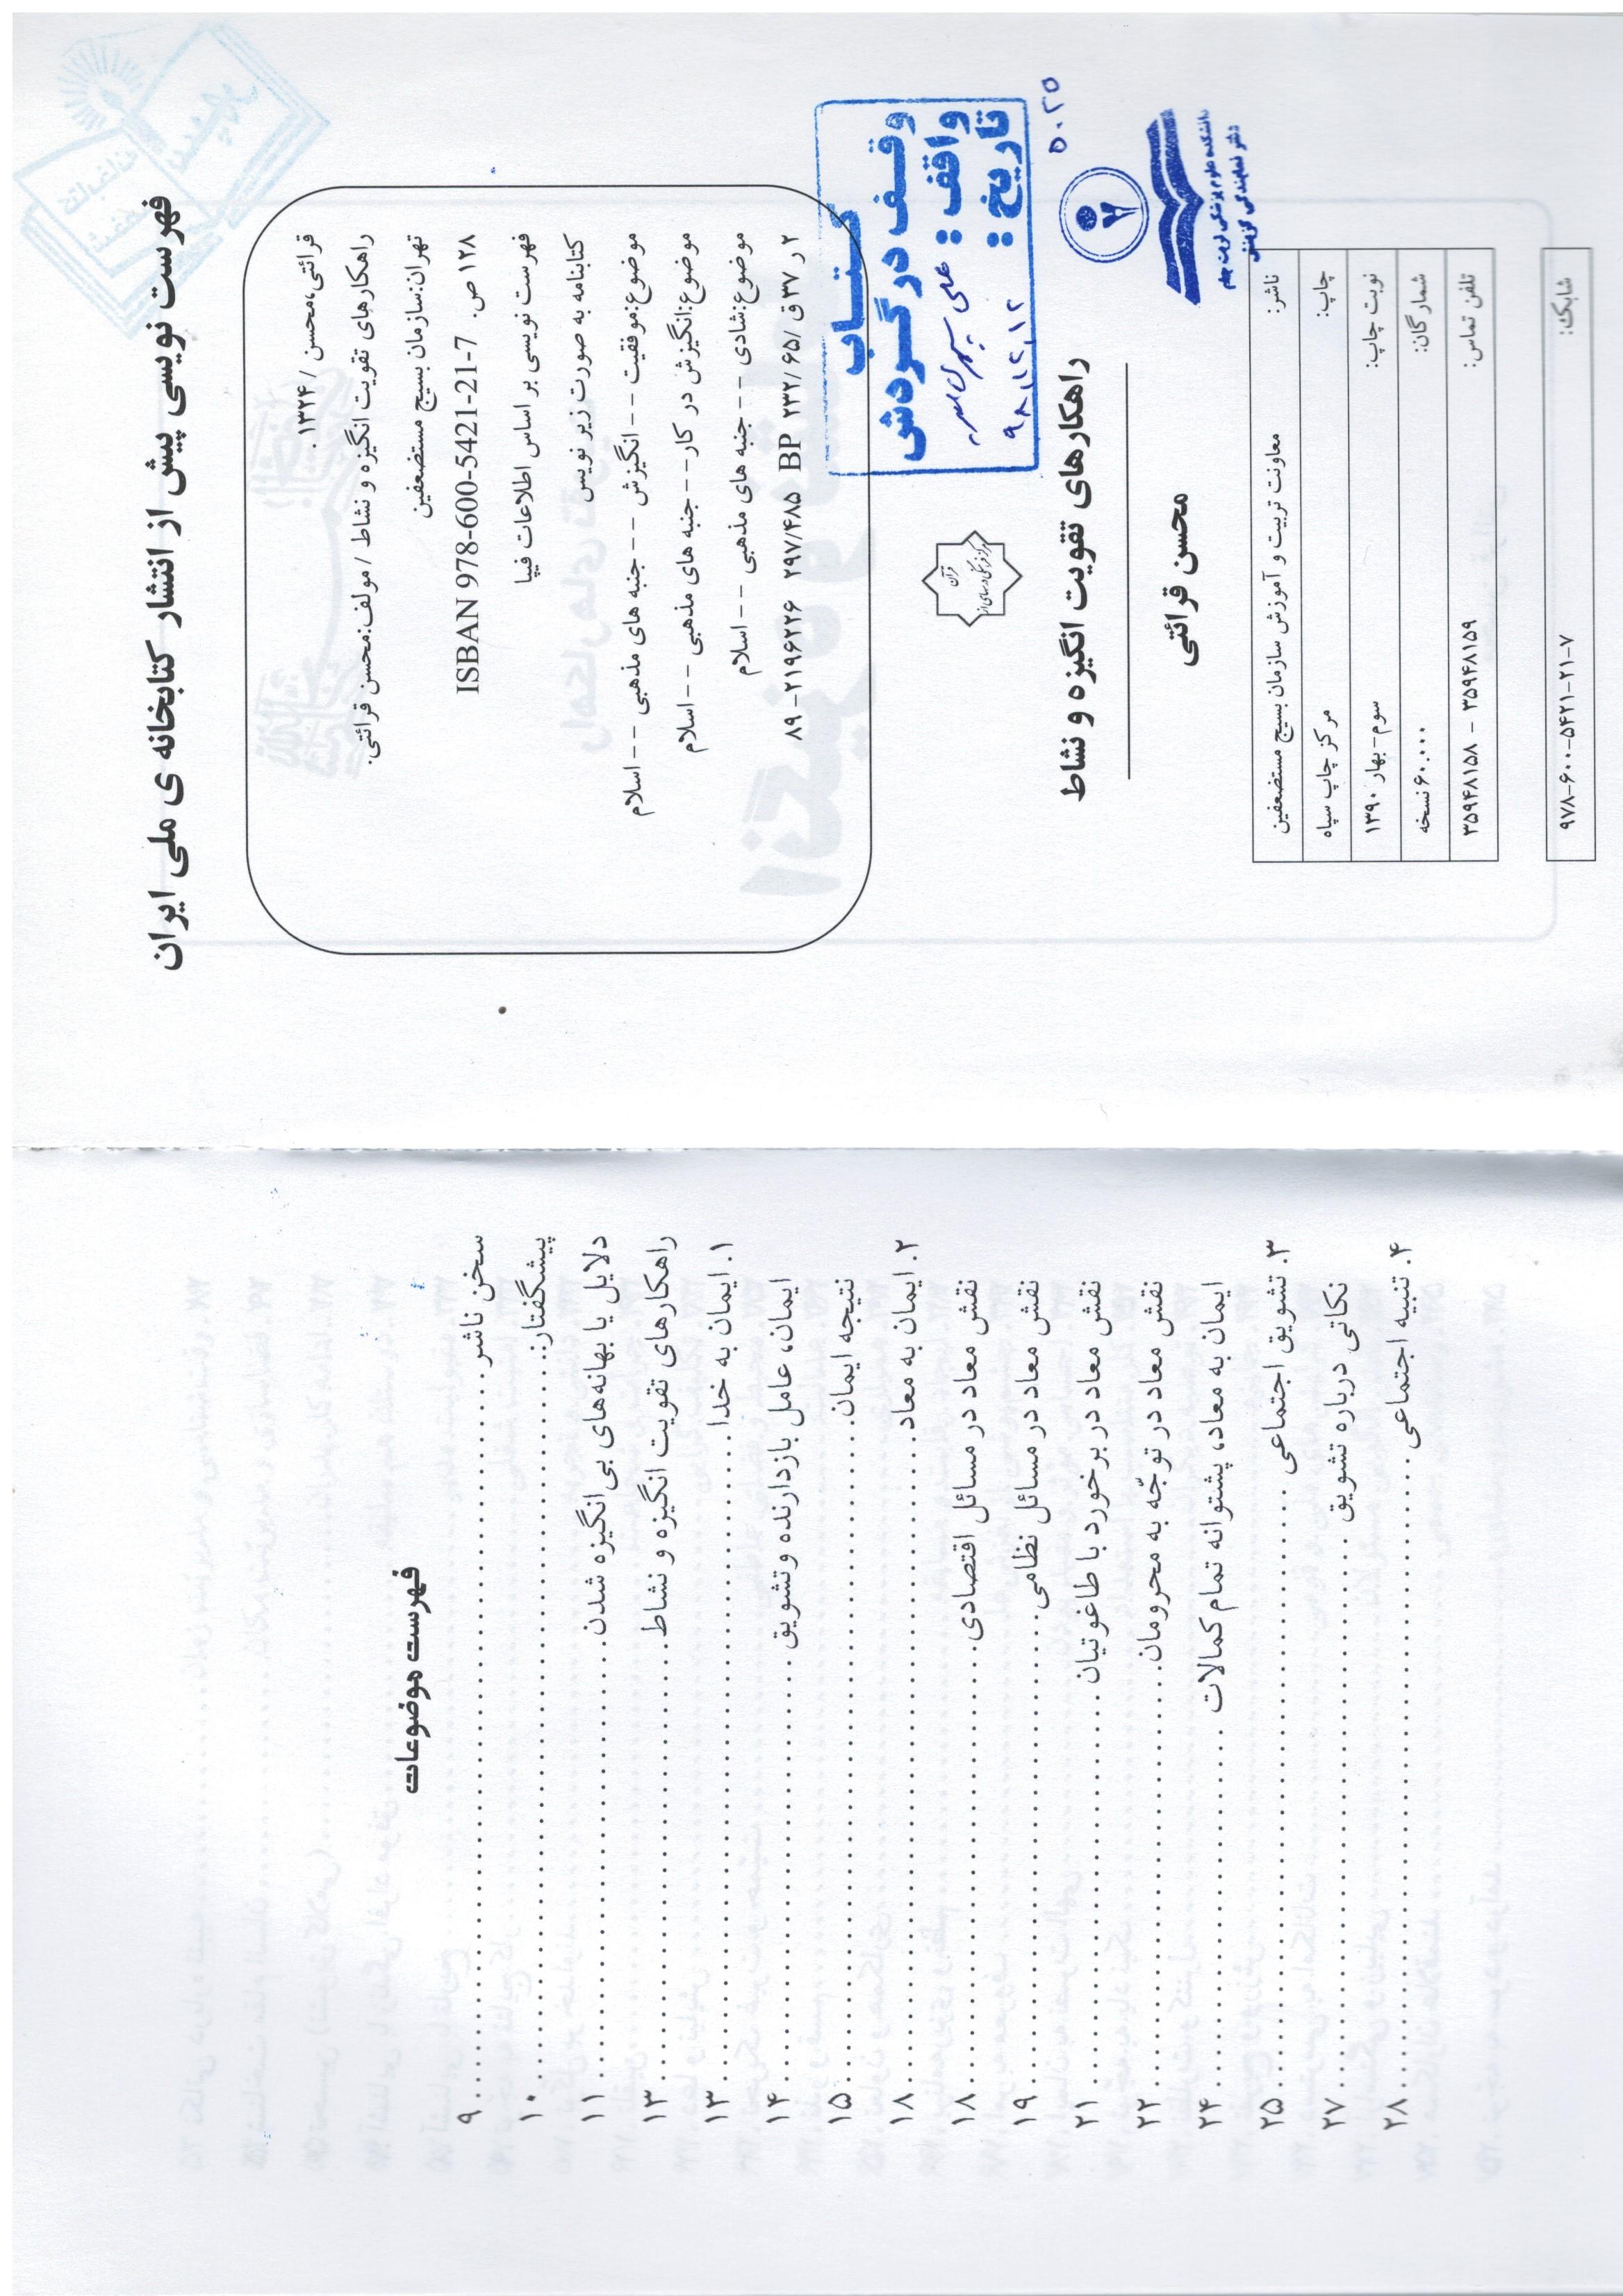 فهرست نویسی پیش از انتشار کتابخانه ی ملی ایران
قرائتی،محسن / ۱۳۲۴ .
راهکارهای تقویت انگیزه و نشاط / مولف:محسن قرائتی.
تهران:سازمان بسیج مستضعفین
۱۲۸ ص. ISBAN 978-600-5421-21-7
فهرست نویسی بر اساس اطلاعات فیپا
کتابنامه به صورت زیر نویس
موضوع:موفقیت -- انگیزش -- جنبه های مذهبی -- اسلام
موضوع:انگیزش در کار -- جنبه های مذهبی -- اسلام
موضوع:شادی -- جنبه های مذهبی -- اسلام
۲ر ۳۷ق /۶۵/ ۲۳۲ BP ۲۹۷/۴۸۵ ۲۱۹۶۲۲۶-۸۹
کتاب
وقف در گردش
واقف : علی
تاریخ : ۹۸،۱۲،۱۲
۵۰۲۵
قرآن
راهکارهای تقویت انگیزه و نشاط
محسن قرائتی
ناشر: معاونت تربیت و آموزش سازمان بسیج مستضعفین
چاپ: مرکز چاپ سپاه
نوبت چاپ: سوم-بهار ۱۳۹۰
شمارگان: ۶۰.۰۰۰نسخه
تلفن تماس: ۳۵۹۴۸۱۵۹ - ۳۵۹۴۸۱۵۸
شابک: ۹۷۸-۶۰۰-۵۴۲۱-۲۱-۷
فهرست موضوعات
سخن ناشر ۹
پیشگفتار: ۱۰
دلایل یا بهانه‌های بی‌انگیزه شدن ۱۱
راهکارهای تقویت انگیزه و نشاط ۱۳
۱. ایمان به خدا ۱۳
ایمان، عامل بازدارنده وتشویق ۱۴
نتیجه ایمان ۱۵
۲. ایمان به معاد ۱۸
نقش معاد در مسائل اقتصادی ۱۸
نقش معاد در مسائل نظامی ۱۹
نقش معاد در برخورد با طاغوتیان ۲۱
نقش معاد در توجّه به محرومان ۲۲
ایمان به معاد، پشتوانه تمام کمالات ۲۴
۳. تشویق اجتماعی ۲۵
نکاتی درباره تشویق ۲۷
۴. تنبیه اجتماعی ۲۸